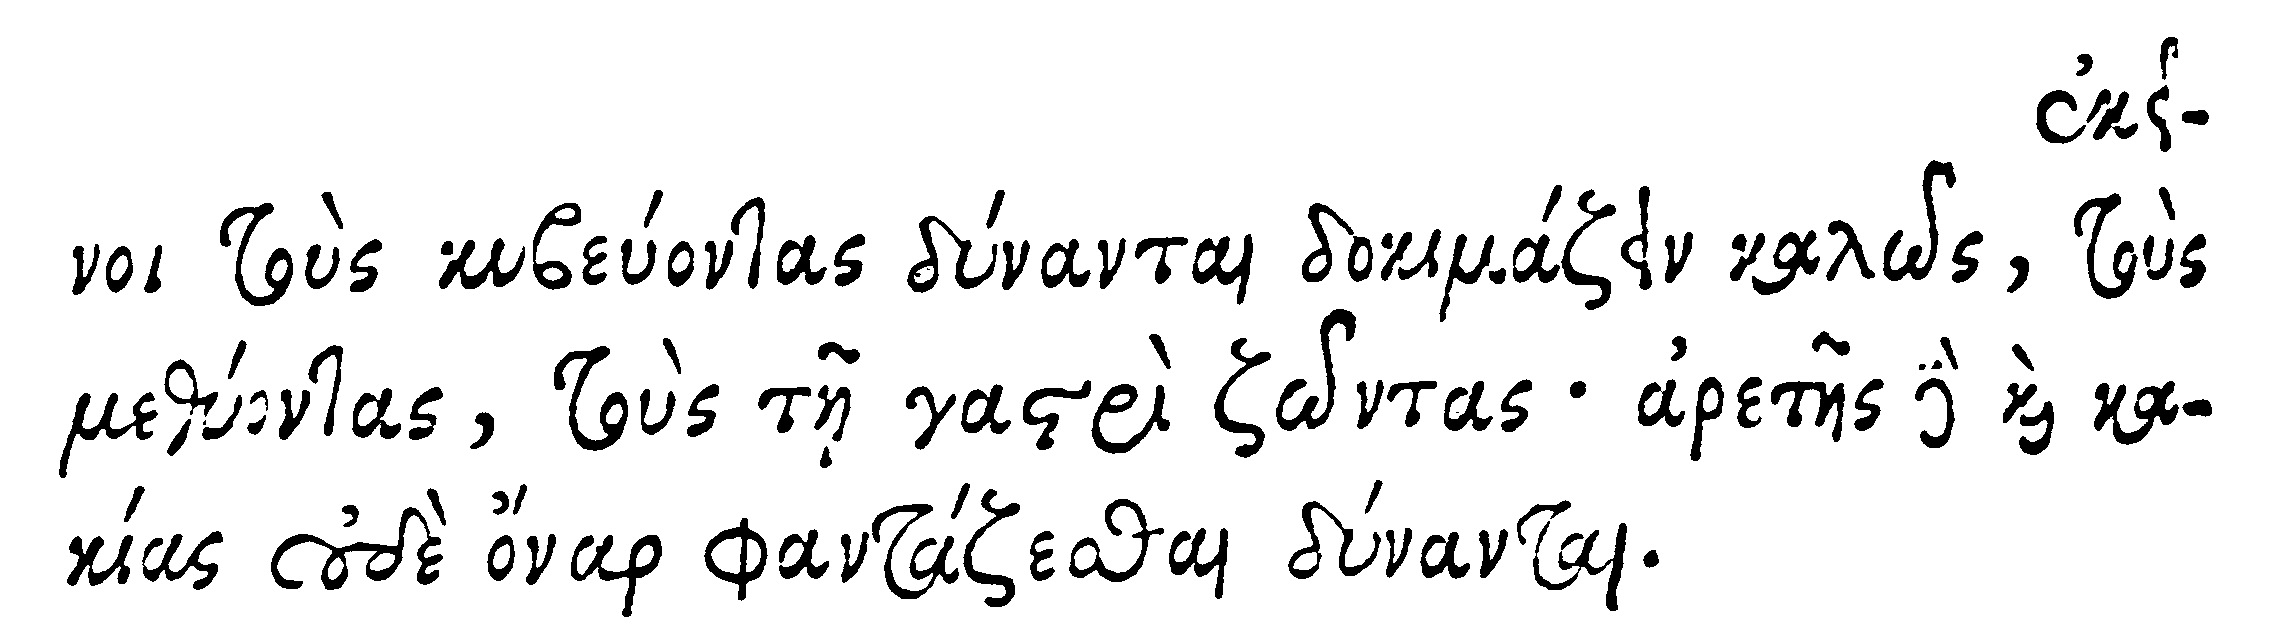 ἐκεῖ-
νοι τοὺς κυβεύοντας δύνανται δοκιμάζειν καλῶς, τοὺς
μεθύοντας, τοὺς τῇ γαστρὶ ζῶντας· ἀρετῆς δὲ καὶ κα-
κίας οὐδὲ ὄναρ φαντάζεσθαι δύνανται.